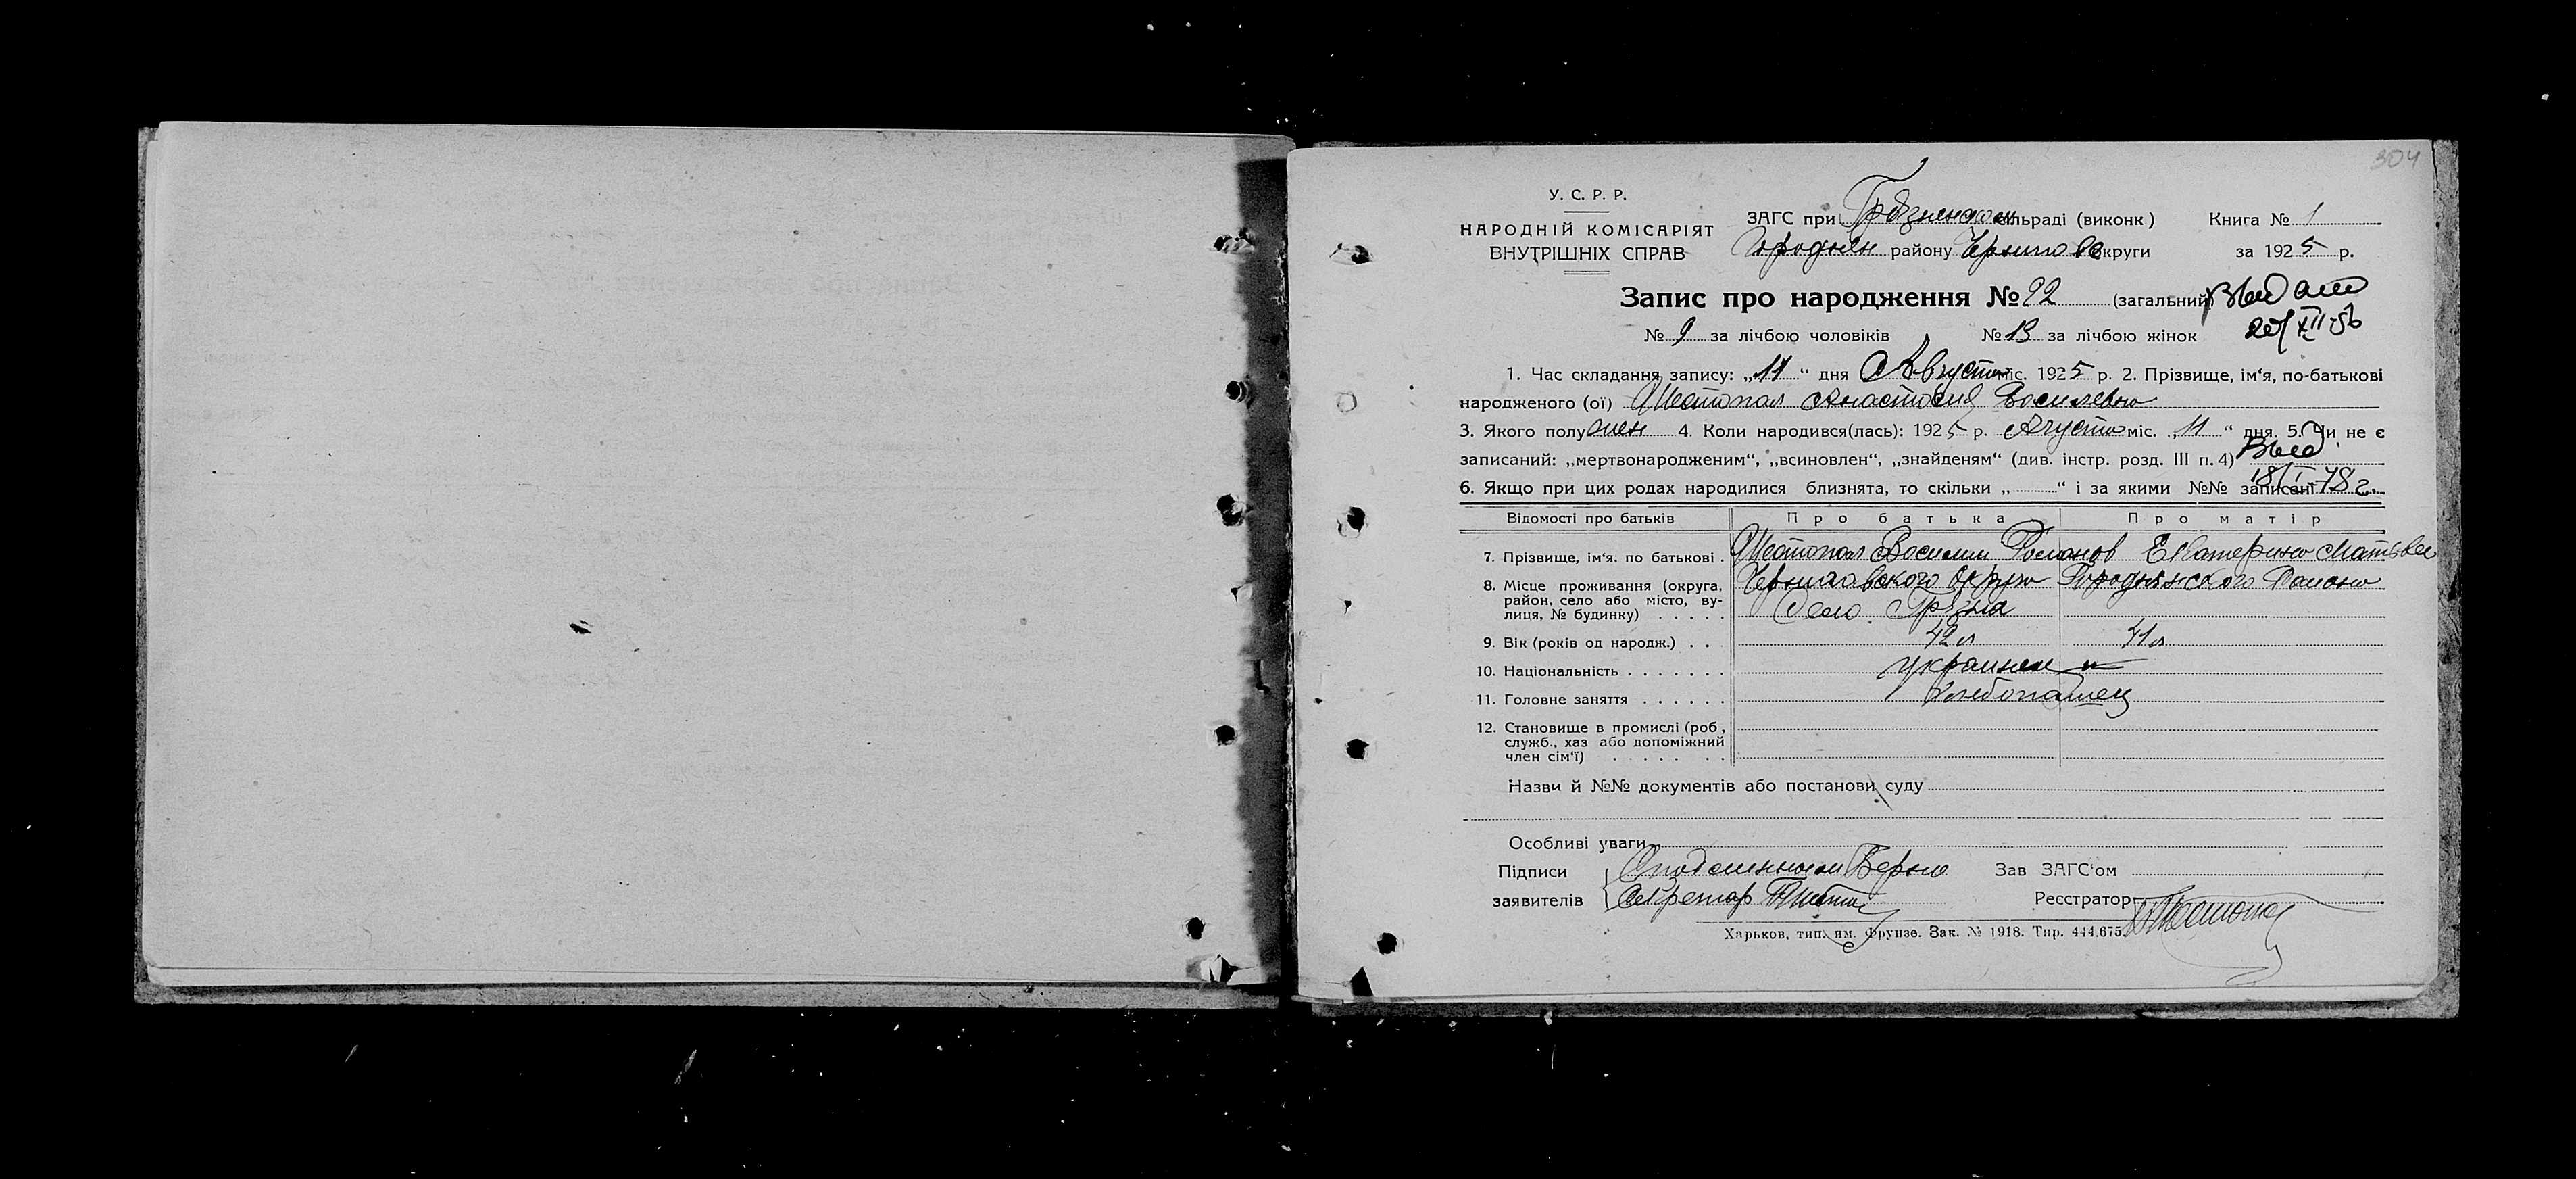 304
У. С. Р. Р.
НАРОДНІЙ КОМІСАРІЯТ
ВНУТРІШНІХ СПРАВ
ЗАГС при сільраді (виконк.) Книга № 1
Городнян району Чернигов округи за 1925 р.
Запис про народження № 22 (загальний)
Выдан
№ 9 за лічбою чоловіків № 13 за лічбою жінок
XII-56
1. Час складання запису: „11“ дня Августа міс. 1925 р. 2. Прізвище, ім‘я, по-батькові
народженого (ої) Шестопал Анастасия Василевна
3. Якого полу жен 4. Коли народився(лась): 1925 р. Августа міс. „11“ дня. 5. Чи не є
записаний: „мертвонародженим“, „всиновлен“, „знайденям“ (див. інстр. розд. III п. 4) Выд
6. Якщо при цих родах народилися близнята, то скільки „ “ і за якими №№ записані 18/I-78 г.
Відомості про батьків Про батька Про матір
7. Прізвище, ім‘я, по батькові . Шестопал Василий Романов Екатерина Матвеев
8. Місце проживання (округа, район, село або місто, вулиця, № будинку) . . . . . Черниговского Округа Городнянского Района
Село Грязна
9. Вік (років од народж.) . . . 42 л 41 л
10. Національність . . . . . . . украинец
11. Головне заняття . . . . . . Хлебопашец
12. Становище в промислі (роб., служб., хаз або допоміжний член сім‘ї) . . . . . . .
Назви й №№ документів або постанови суду
Особливі уваги
Підписи Верно Зав ЗАГС‘ом
заявителів Секретар Реєстратор Шестопал
Харьков, тип. им. Фрунзе. Зак. № 1918. Тир. 444.675.